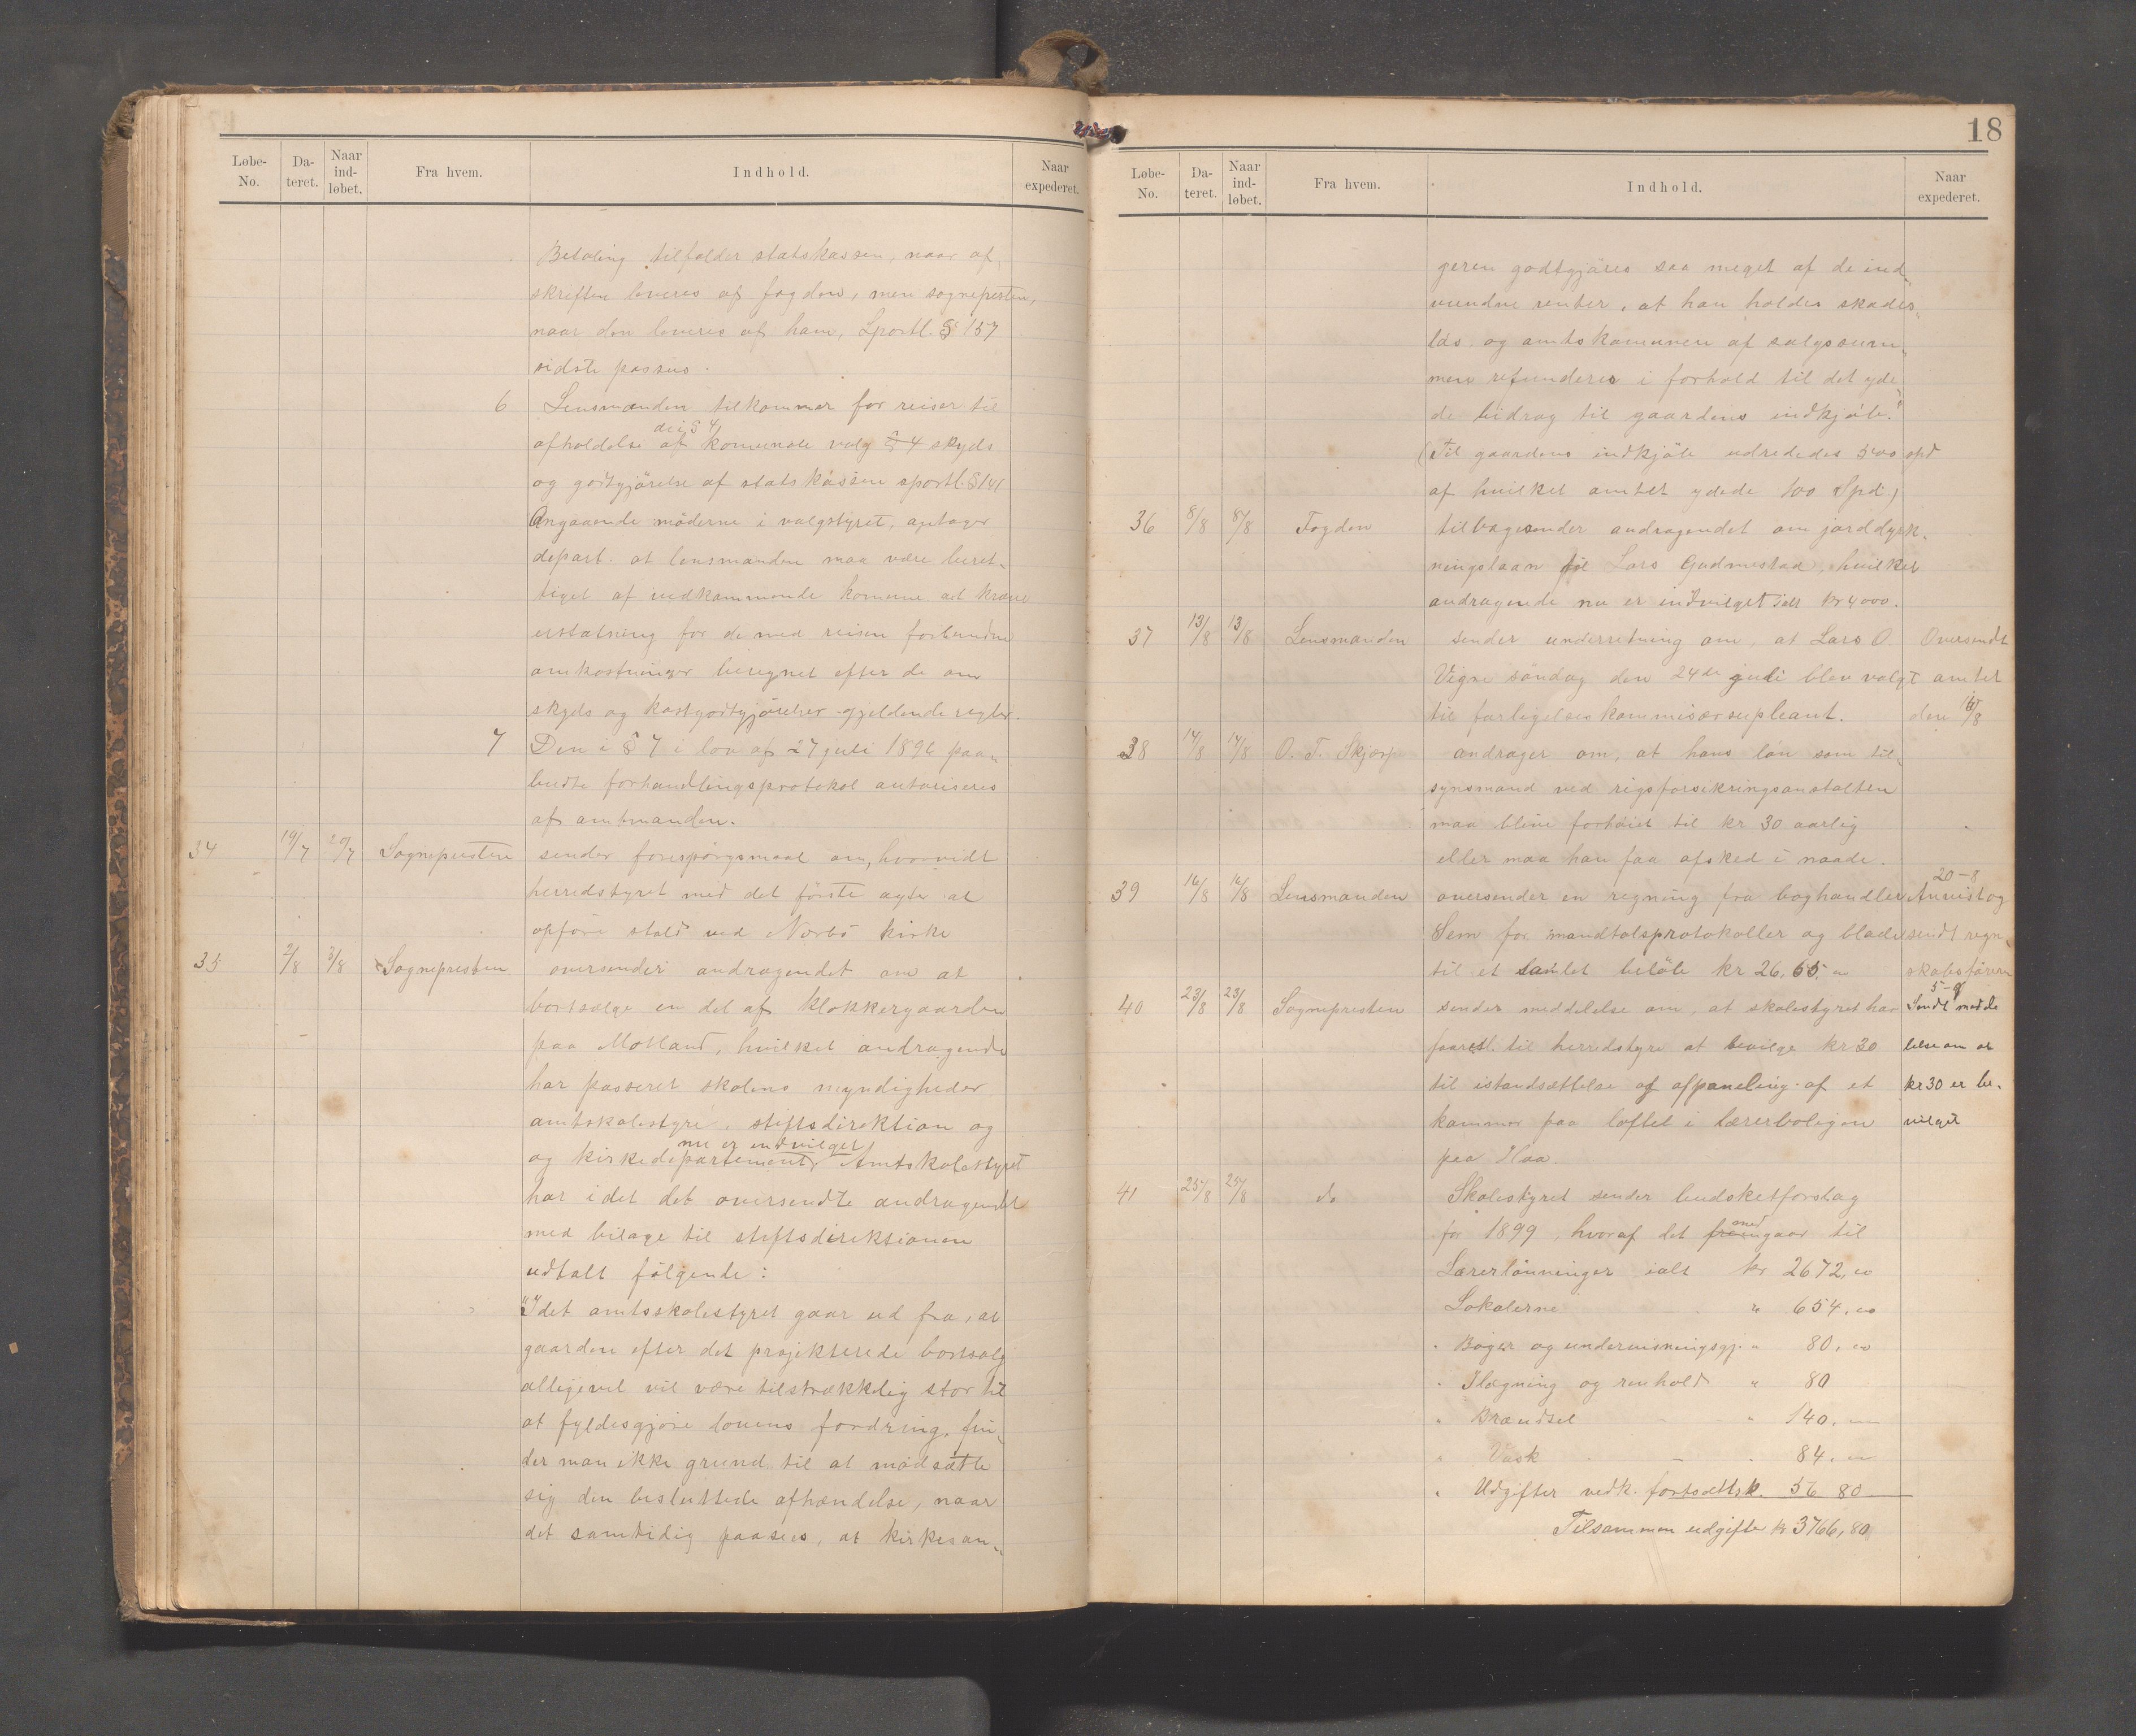 Løbe-
No.
Da-
teret.
Naar
ind-
løbet.
Fra hvem.
Indhold.
Naar
expederet.
Betaling tilfalder statskassen, naar af,
skriften leveres af fogden, men sognepresten,
naar den leveres af ham, Sportl. § 157
sidste passus.
6 Lensmanden tilkommer for reiser til
de i § 4
afholdelse af komunale valg § 4 skyds
og godtgjörelse af statskassen sportl. § 141
Angaaende möderne i valgstyret, antager
depart. at lensmanden maa være beret-
tiget af vedkommende komune at kræve
erstatning for de med reisen forbundne
omkostninger beregnet efter de om
skyds og kostgodtgjörelser gjeldende regler.
7 Den i § 7 i lov af 27 juli 1896 paa-
budte forhandlingsprotokol autoriseres
af amtmanden.
34 19/7 20/7 Sognepresten sender forespörgsmaal om, hvorvidt
herredstyret med det förste agter at
opföre stald ved Nærbö kirke
35 2/8 3/8 Sognepresten oversender andragendet om at
bortsælge en del af klokkergaarden
paa Motland, hvilket andragende
har passeret skolens myndigheder
amtskolestyre, stiftsdirektion og
nu er indvilget
og kirkedepartement, Amtskolestyret
har idet det oversendte andragendet
med bilage til stiftsdirektionen
udtalt fölgende:
"Idet amtsskolestyret gaar ud fra, at
gaarden efter det projekterede bortsalg
alligevel vil være tilstrækkelig stor til
at fyldesgjöre lovens fordring, fin-
der man ikke grund til at modsætte
sig den besluttede afhændelse, naar
det samtidig paasees, at kirkesan-
18
Løbe-
No.
Da-
teret.
Naar
ind-
løbet.
Fra hvem.
Indhold.
Naar
expederet.
geren godtgjöres saa meget af de ind-
vundne renter, at han holdes skades-
lös og amtskomunen af salgssum-
men refunderes i forhold til det yde-
de bidrag til gaardens indkjöb."
(Til gaardens indkjöb udrededes 500 spd
af hvilket amtet ydede 100 Spd.)
36 8/8 8/8 Fogden tilbagesender andragendet om jorddyrk-
ningslaan til Lars Gudmestad, hvilket
andragende nu er indvilget ialt kr 4000.
37 13/8 13/8 Lensmanden sender underretning om, at Lars O. Oversendt
Vigre söndag den 24de juli blev valgt amtet
til forligelseskommisærsupleant. den 16/8
38 14/8 14/8 O. T. Skjærp andrager om, at hans lön som til-
synsmand ved rigsforsikringsanstalten
maa blive forhöiet til kr 30 aarlig
eller maa han faa afsked i naade.
20-8
39 16/8 16/8 Lensmanden oversender en regning fra boghandler Anvist og
Sem for mandtalsprotokoller og blade sendt regn-
til et samlet belöb kr 26.65 skabsföreren
5-9
40 23/8 23/8 Sognepresten sender meddelelse om, at skolestyret har Sendt medde
foaresl. til herredstyre at bevilge kr 30 lelse om at
til istandsættelse og afpaneling af et kr 30 er be-
kammer paa loftet i lærerboligen vilget
paa Haa.
41 25/8 25/8 do Skolestyret sender budsketforslag
med
for 1899, hvoraf det fremgaar til
Lærerlönninger ialt kr 2672,00
Lokalerne " 654.00
" Böger og undervisningsgj. " 80,00
" Ilægning og renhold " 80
" Brændsel " 140.
" Vask 84.
" Udgifter vedk. fortsættsk. 56 80
Tilsammen udgifter kr 3766,80